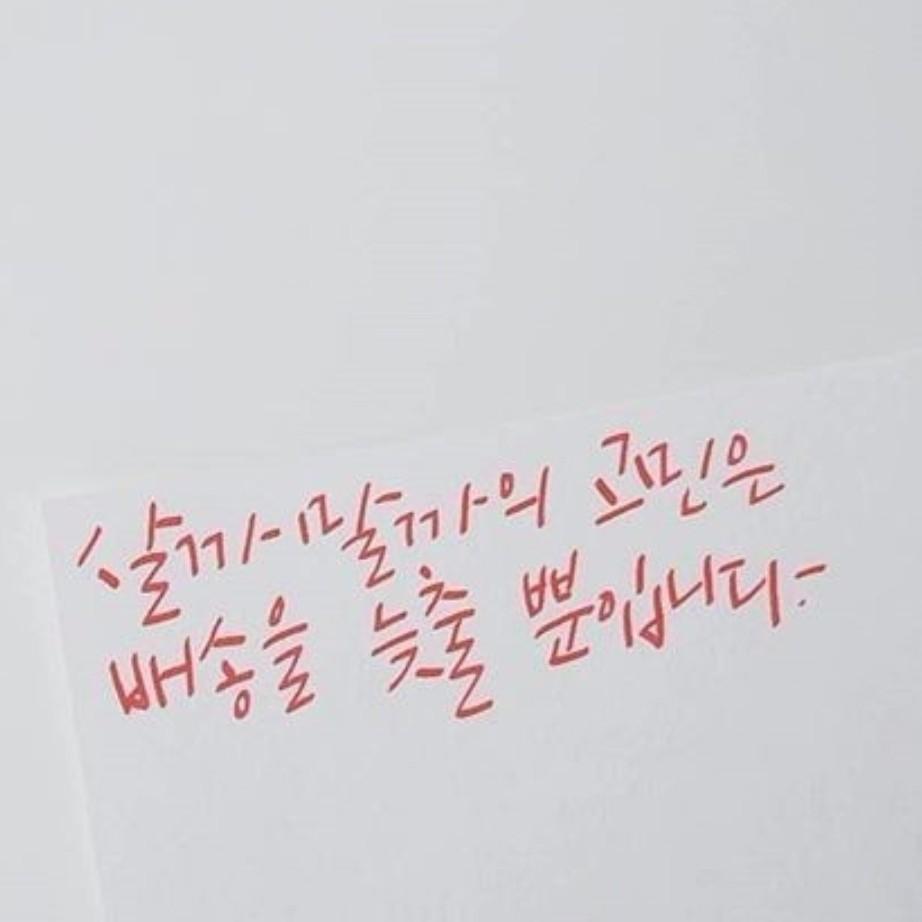 살까말까의 고민은
배송을 늦출 뿐입니다:-